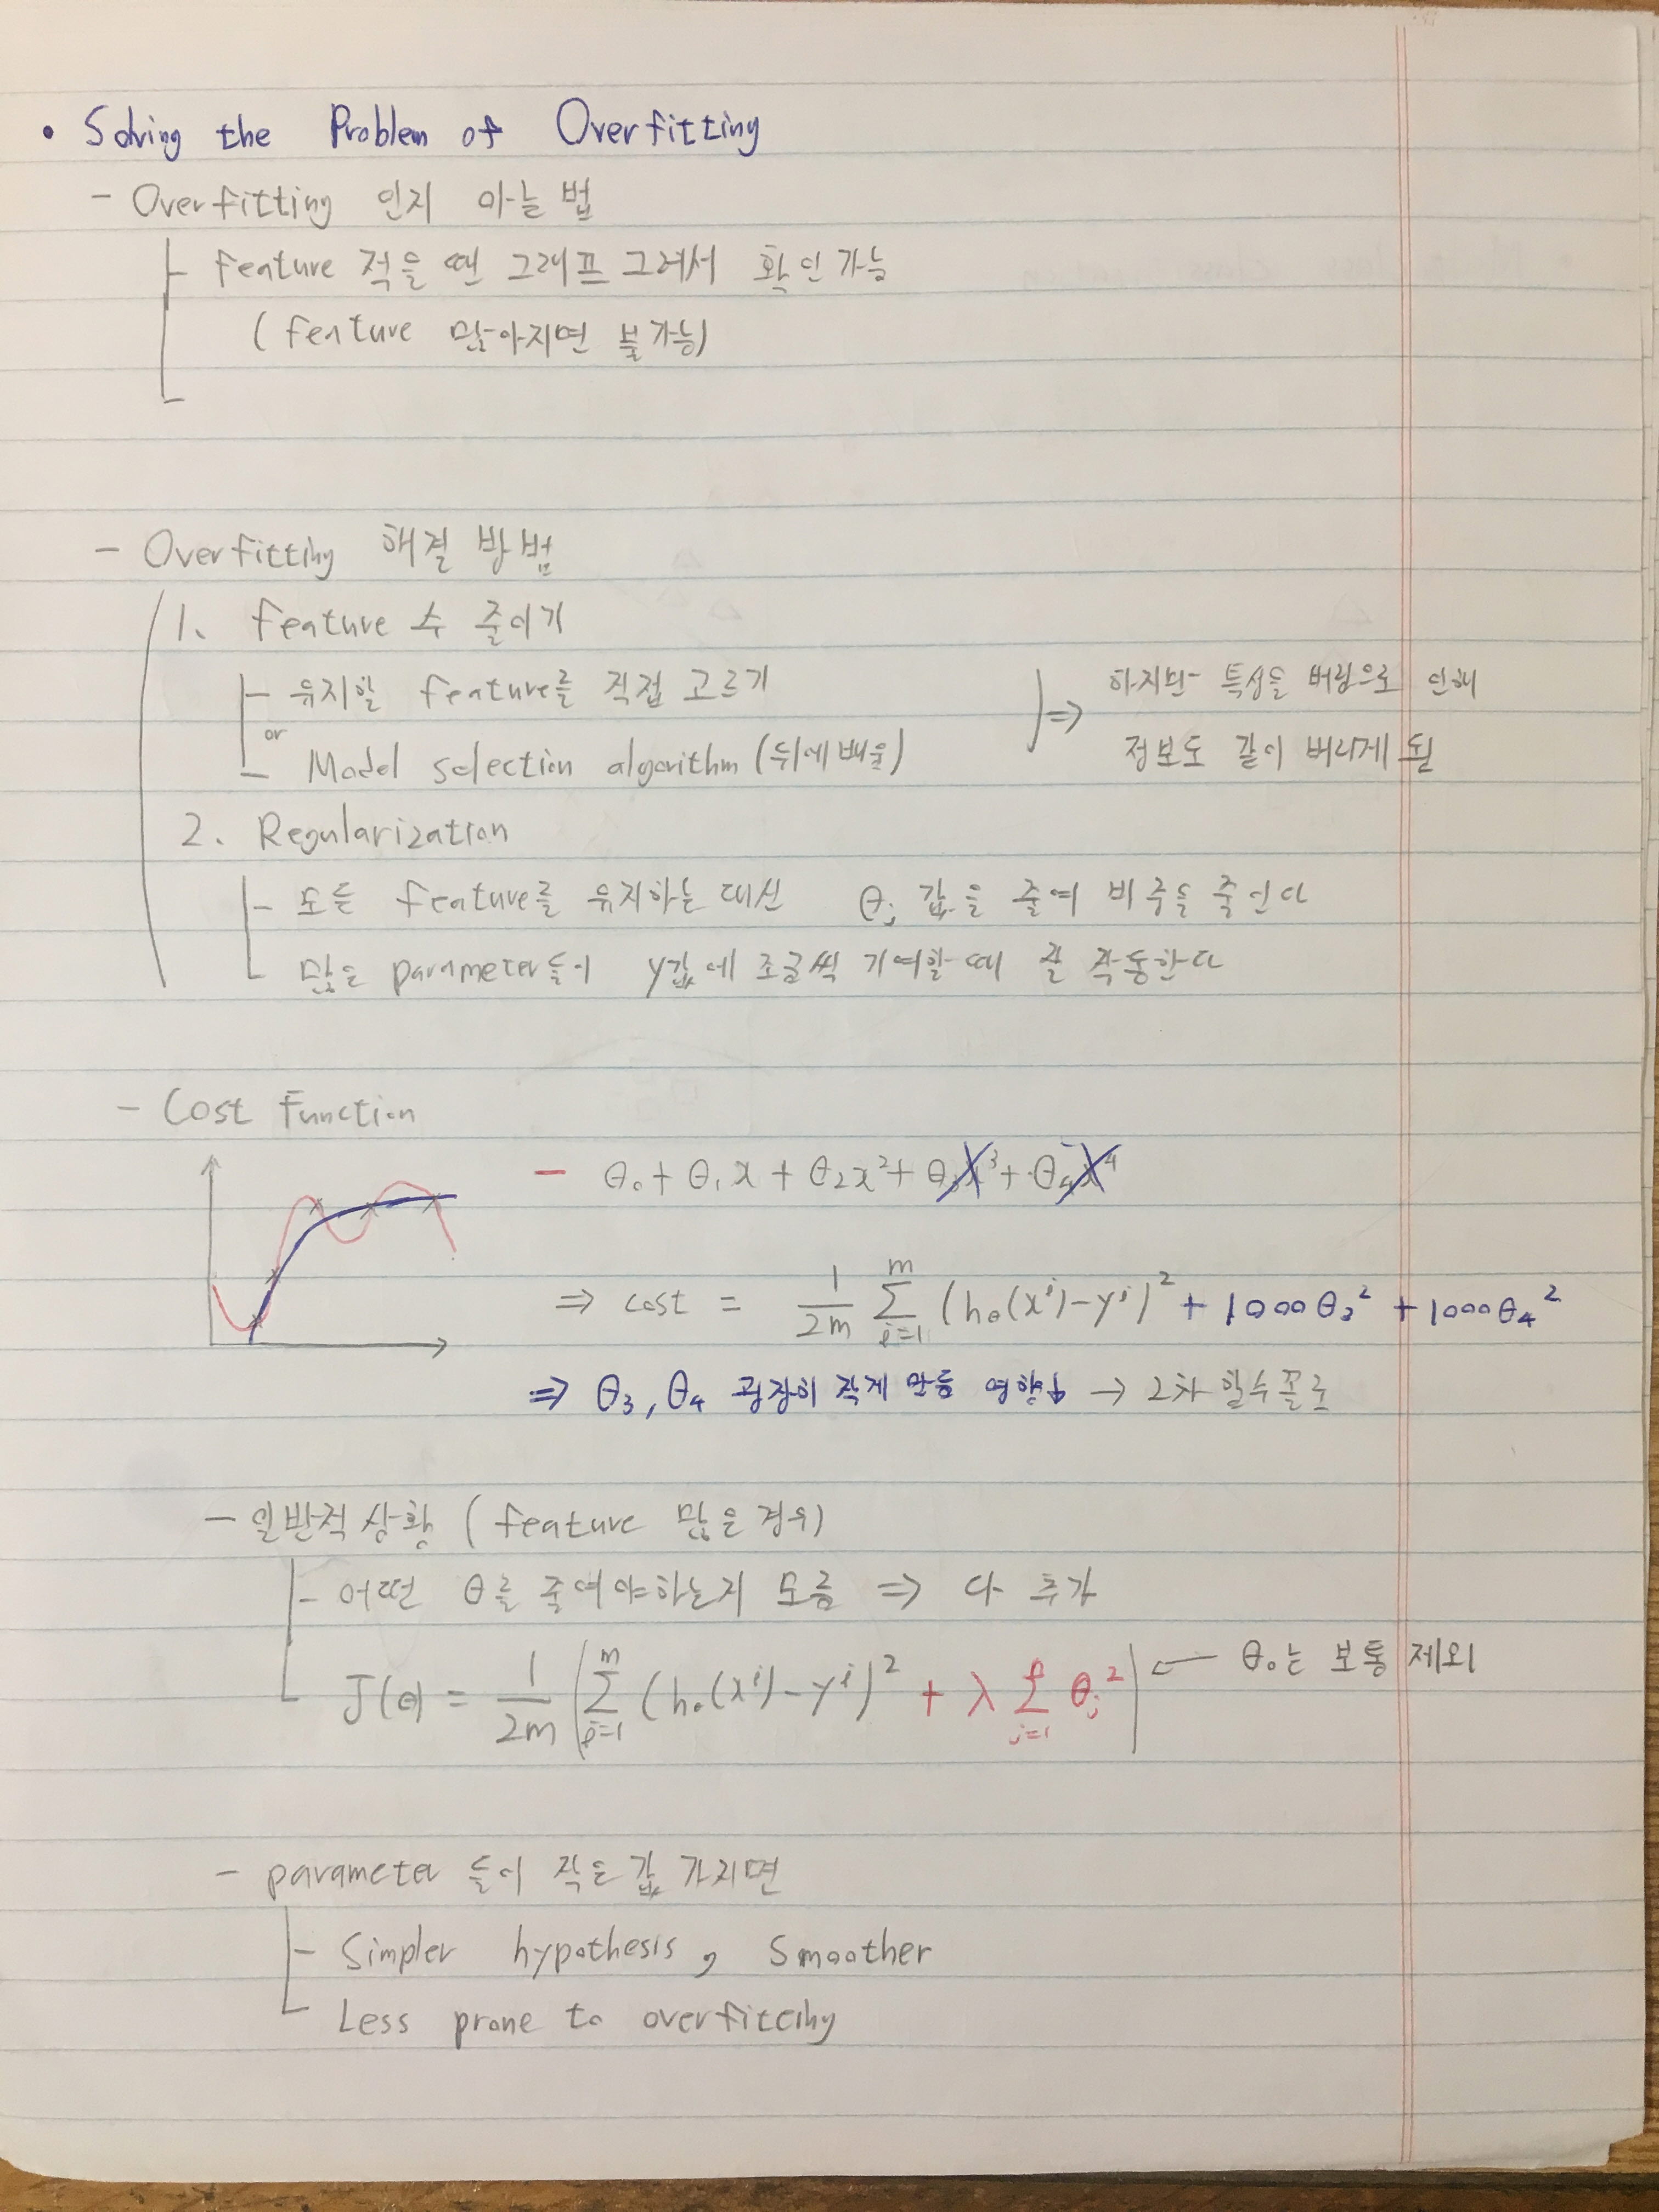 • Solving the Problem of Overfitting
- Overfitting 인지 아는 법
feature 적을 땐 그래프 그려서 확인가능
(feature 많아지면 불가능)
- Overfitting 해결 방법
1. feature 수 줄이기
- 유지할 feature를 직접 고르기
or
- Model selection algorithm (뒤에 배움)
⇒ 하지만 특성을 버림으로 인해
정보도 같이 버리게 됨
2. Regularization
- 모든 feature를 유지하는 대신 θj 값을 줄여 비중을 줄인다
많은 parameter들이 y값에 조금씩 기여할 때 잘 작동한다
- Cost Function
- θ₀ + θ₁x + θ₂x² + θ₃x³ + θ₄x⁴
⇒ cost = 1/2m Σ i=1 m (hθ(xⁱ) - yⁱ)² + 1000θ₃² + 1000θ₄²
⇒ θ₃, θ₄ 굉장히 작게 만듬 → 2차 함수꼴로
- 일반적 상황 (feature 많은 경우)
- 어떤 θ를 줄여야하는지 모름 ⇒ 다 추가
J(θ) = 1/2m [Σ i=1 m (hθ(xⁱ) - yⁱ)² + λ Σ j=1 θj²] ← θ₀는 보통 제외
- parameter 들이 작은 값 가지면
- Simpler hypothesis, Smoother
Less prone to overfitting